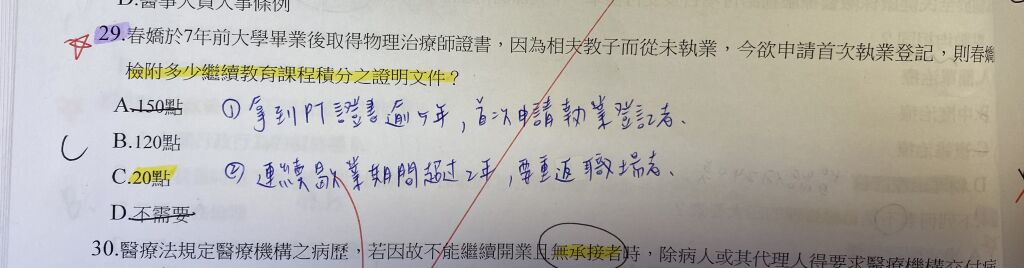 D.醫事人員人事條例
29.春嬌於7年前大學畢業後取得物理治療師證書，因為相夫教子而從未執業，今欲申請首次執業登記，則春嬌
檢附多少繼續教育課程積分之證明文件？
A.150點 ① 拿到PT證書逾5年，首次申請執業登記者.
C B.120點
C.20點 ② 連續歇業期間超過2年，要重返職場者.
D.不需要
30.醫療法規定醫療機構之病歷，若因故不能繼續開業且無承接者時，除病人或其代理人得要求醫療機構交付病